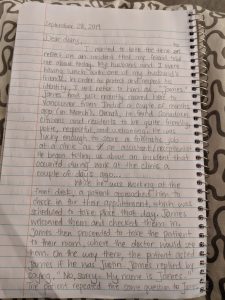 September 28, 2019
Dear diary,
I wanted to take the time and
reflect on an incident that my friend told
me about today. My husband and I were
having lunch with one of my husband's
friends. In order to protect and respect his
identity, I will refer to him as "James".
James had just recently moved here to
Vancouver from India a couple of months
ago (in March).
polite, respectful, and welcoming. He was
lucky enough to score a full-time job
at a clinic as an assistant/receptionist.
He began telling us about an incident that
occurred during work at the clinic a
couple of days ago.
While he was working at the
front desk, a patient approached him to
check in for their appointment, which was
scheduled to take place that day. James
welcomed them and checked them in.
James then proceeded to take the patient
to their room, where the doctor would see
them. On the way there, the patient asked
James if he was Justin. James replied by
saying "No, sorry. My name is James".
The patient repeated the same question to James